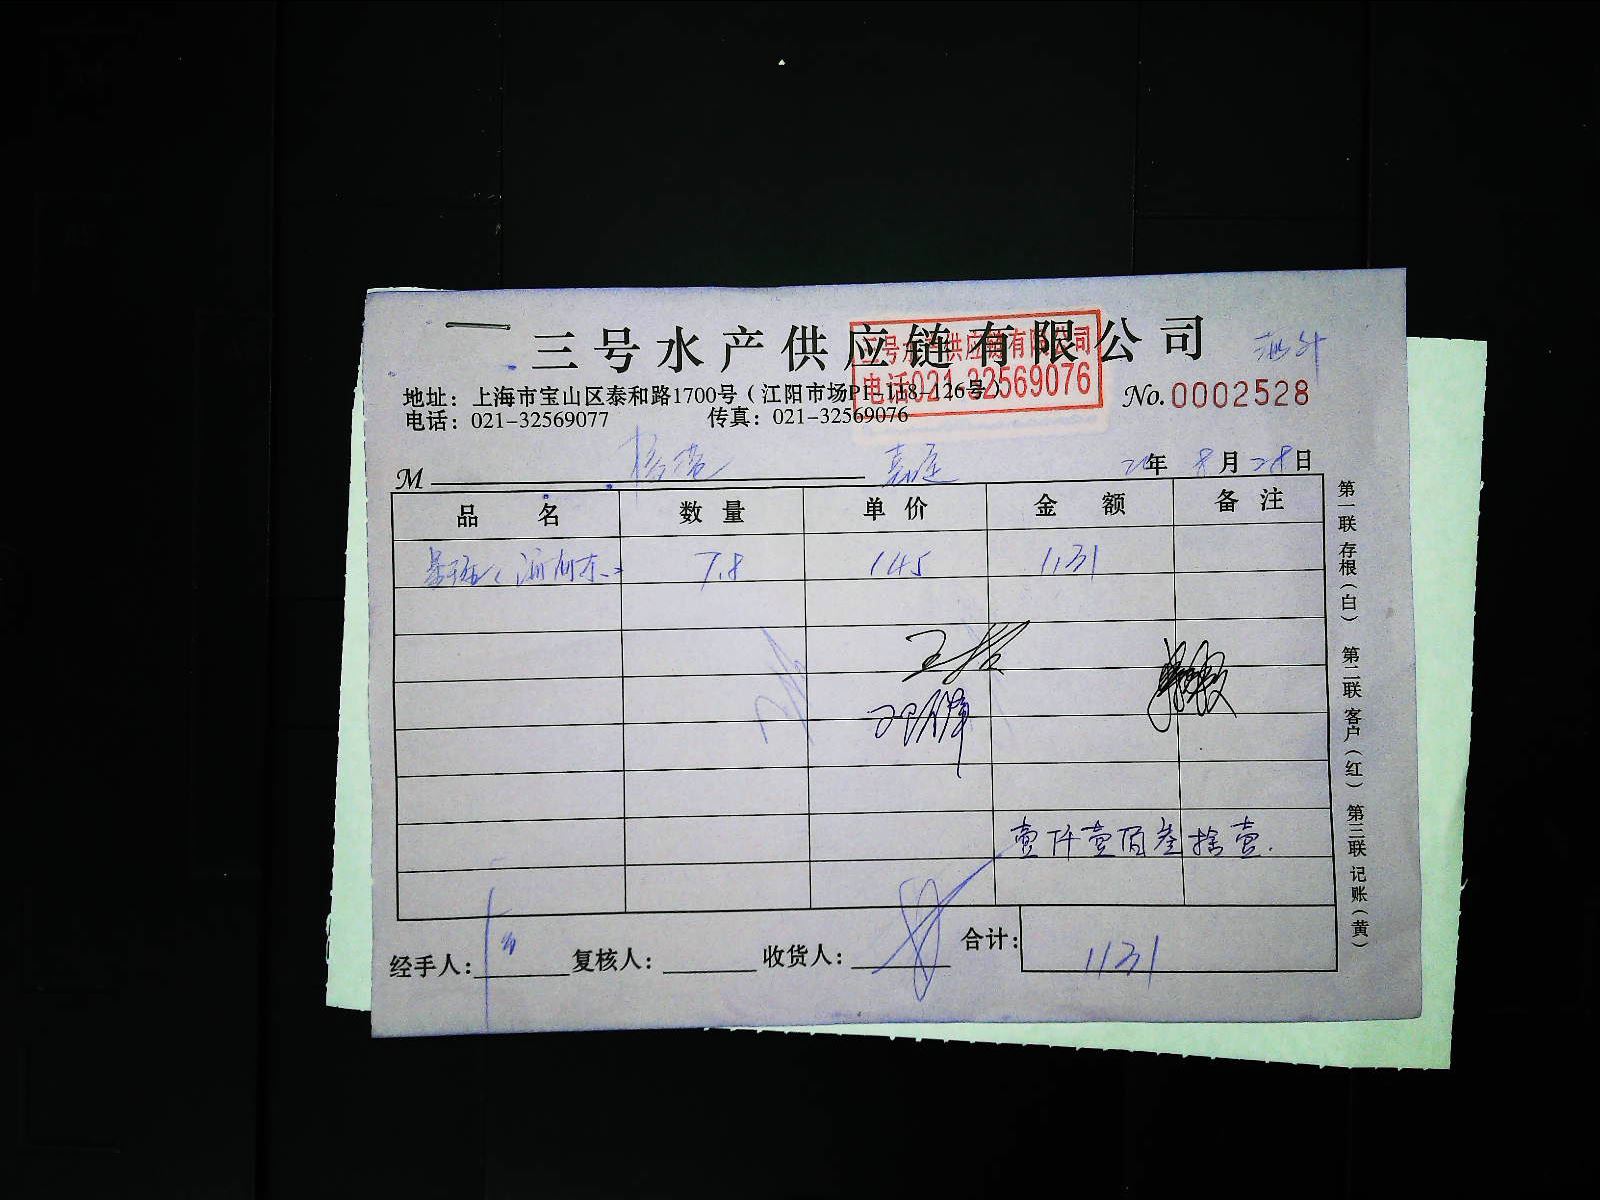 三号水产供应链有限公司
三号水产供应链有限公司
电话021-32569076
地址：上海市宝山区泰和路1700号（江阳市场P1-118-126号）
No.0002528
电话：021-32569077 传真：021-32569076
M 20年 8月 28日
品名 数量 单价 金额 备注
7.8 145 1131
壹仟壹佰叁拾壹.
经手人： 复核人： 收货人： 合计：1131
第一联 存根（白） 第二联 客户（红） 第三联 记账（黄）